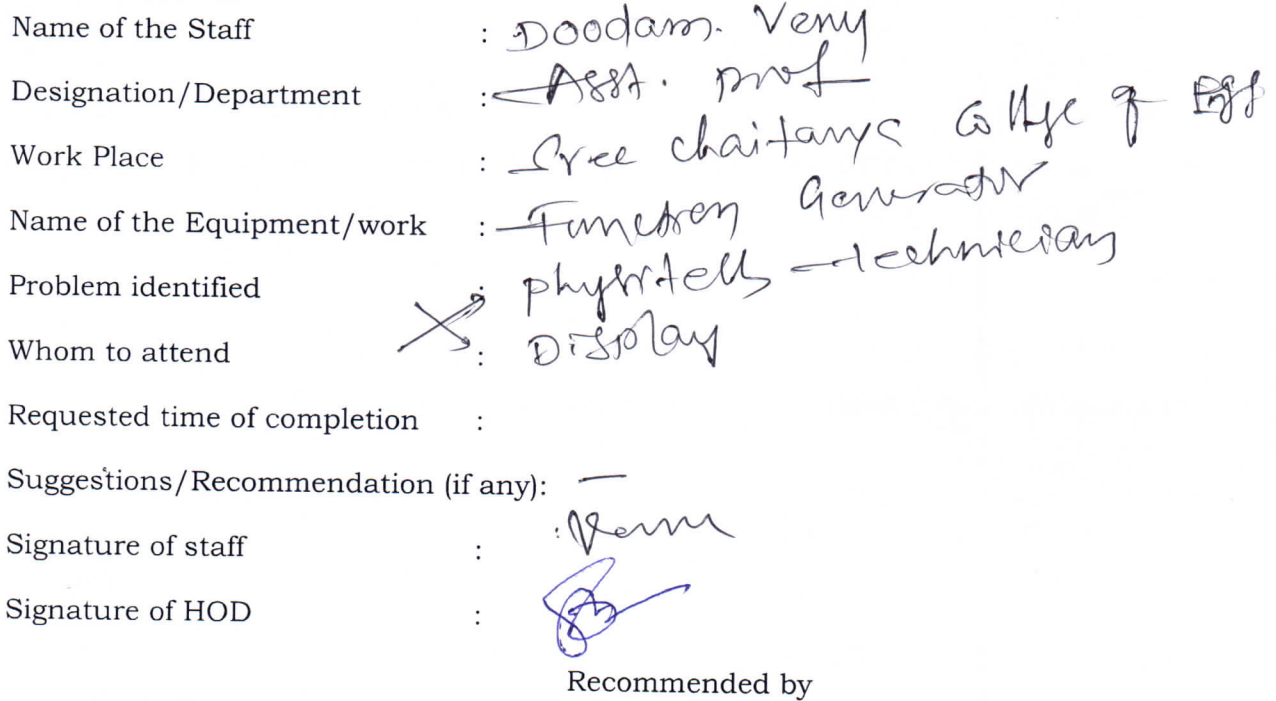 Name of the Staff : Doodam. Veny
Designation/Department : Asst. prof
Work Place : Sree chaitanya College of Engg
Name of the Equipment/work : Function Generator
Problem identified : technician
Whom to attend : Display
Requested time of completion :
Suggestions/Recommendation (if any): —
Signature of staff :
Signature of HOD :
Recommended by